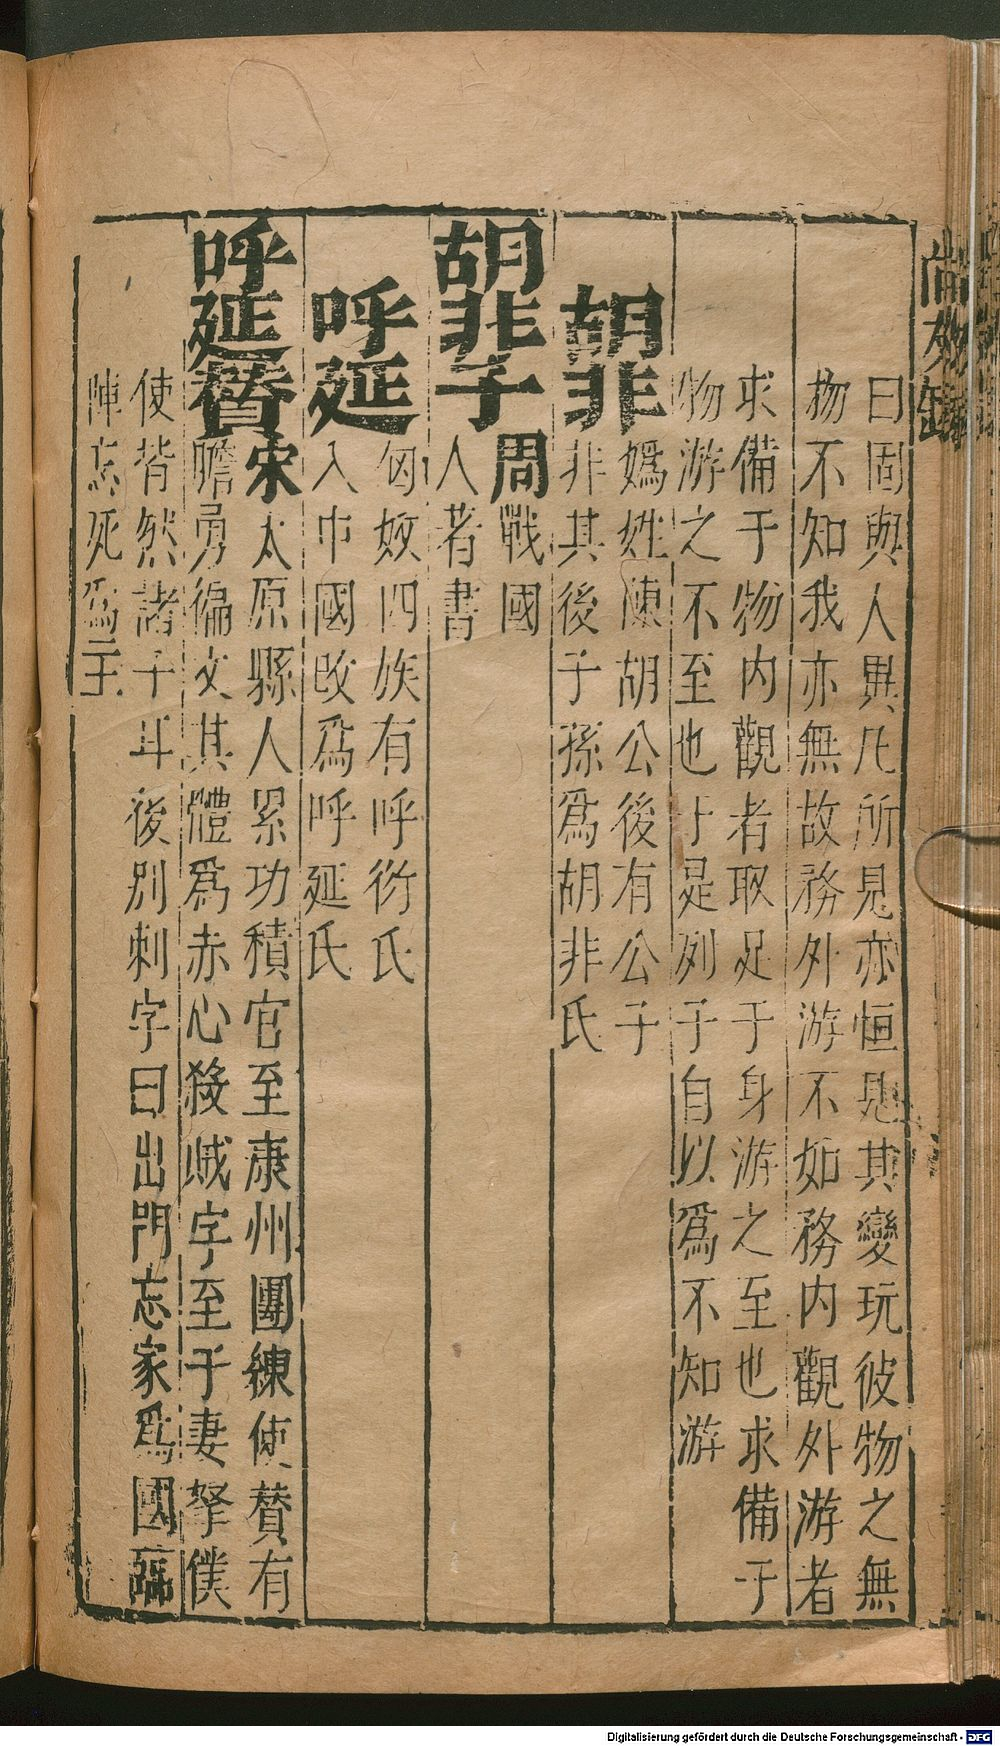 曰固與人異凡所見亦恒見其變玩彼物之無
物不知我亦無故務外游不如務內觀外游者
求備于物內觀者取足于身游之至也求備于
物游之不至也于是列子自以爲不知游
胡非
嬀姓陳胡公後有公子
非其後子孫爲胡非氏
胡非子
周戰國
人著書
呼延
匈奴四族有呼衍氏
入中國改爲呼延氏
呼延賛
宋太原縣人累功積官至康州團練使賛有
膽勇徧文其體爲赤心殺賊字至于妻孥僕
使皆然諸子耳後別刺字曰出門忘家爲國臨
陣忘死爲主
Digitalisierung gefördert durch die Deutsche Forschungsgemeinschaft - DFG